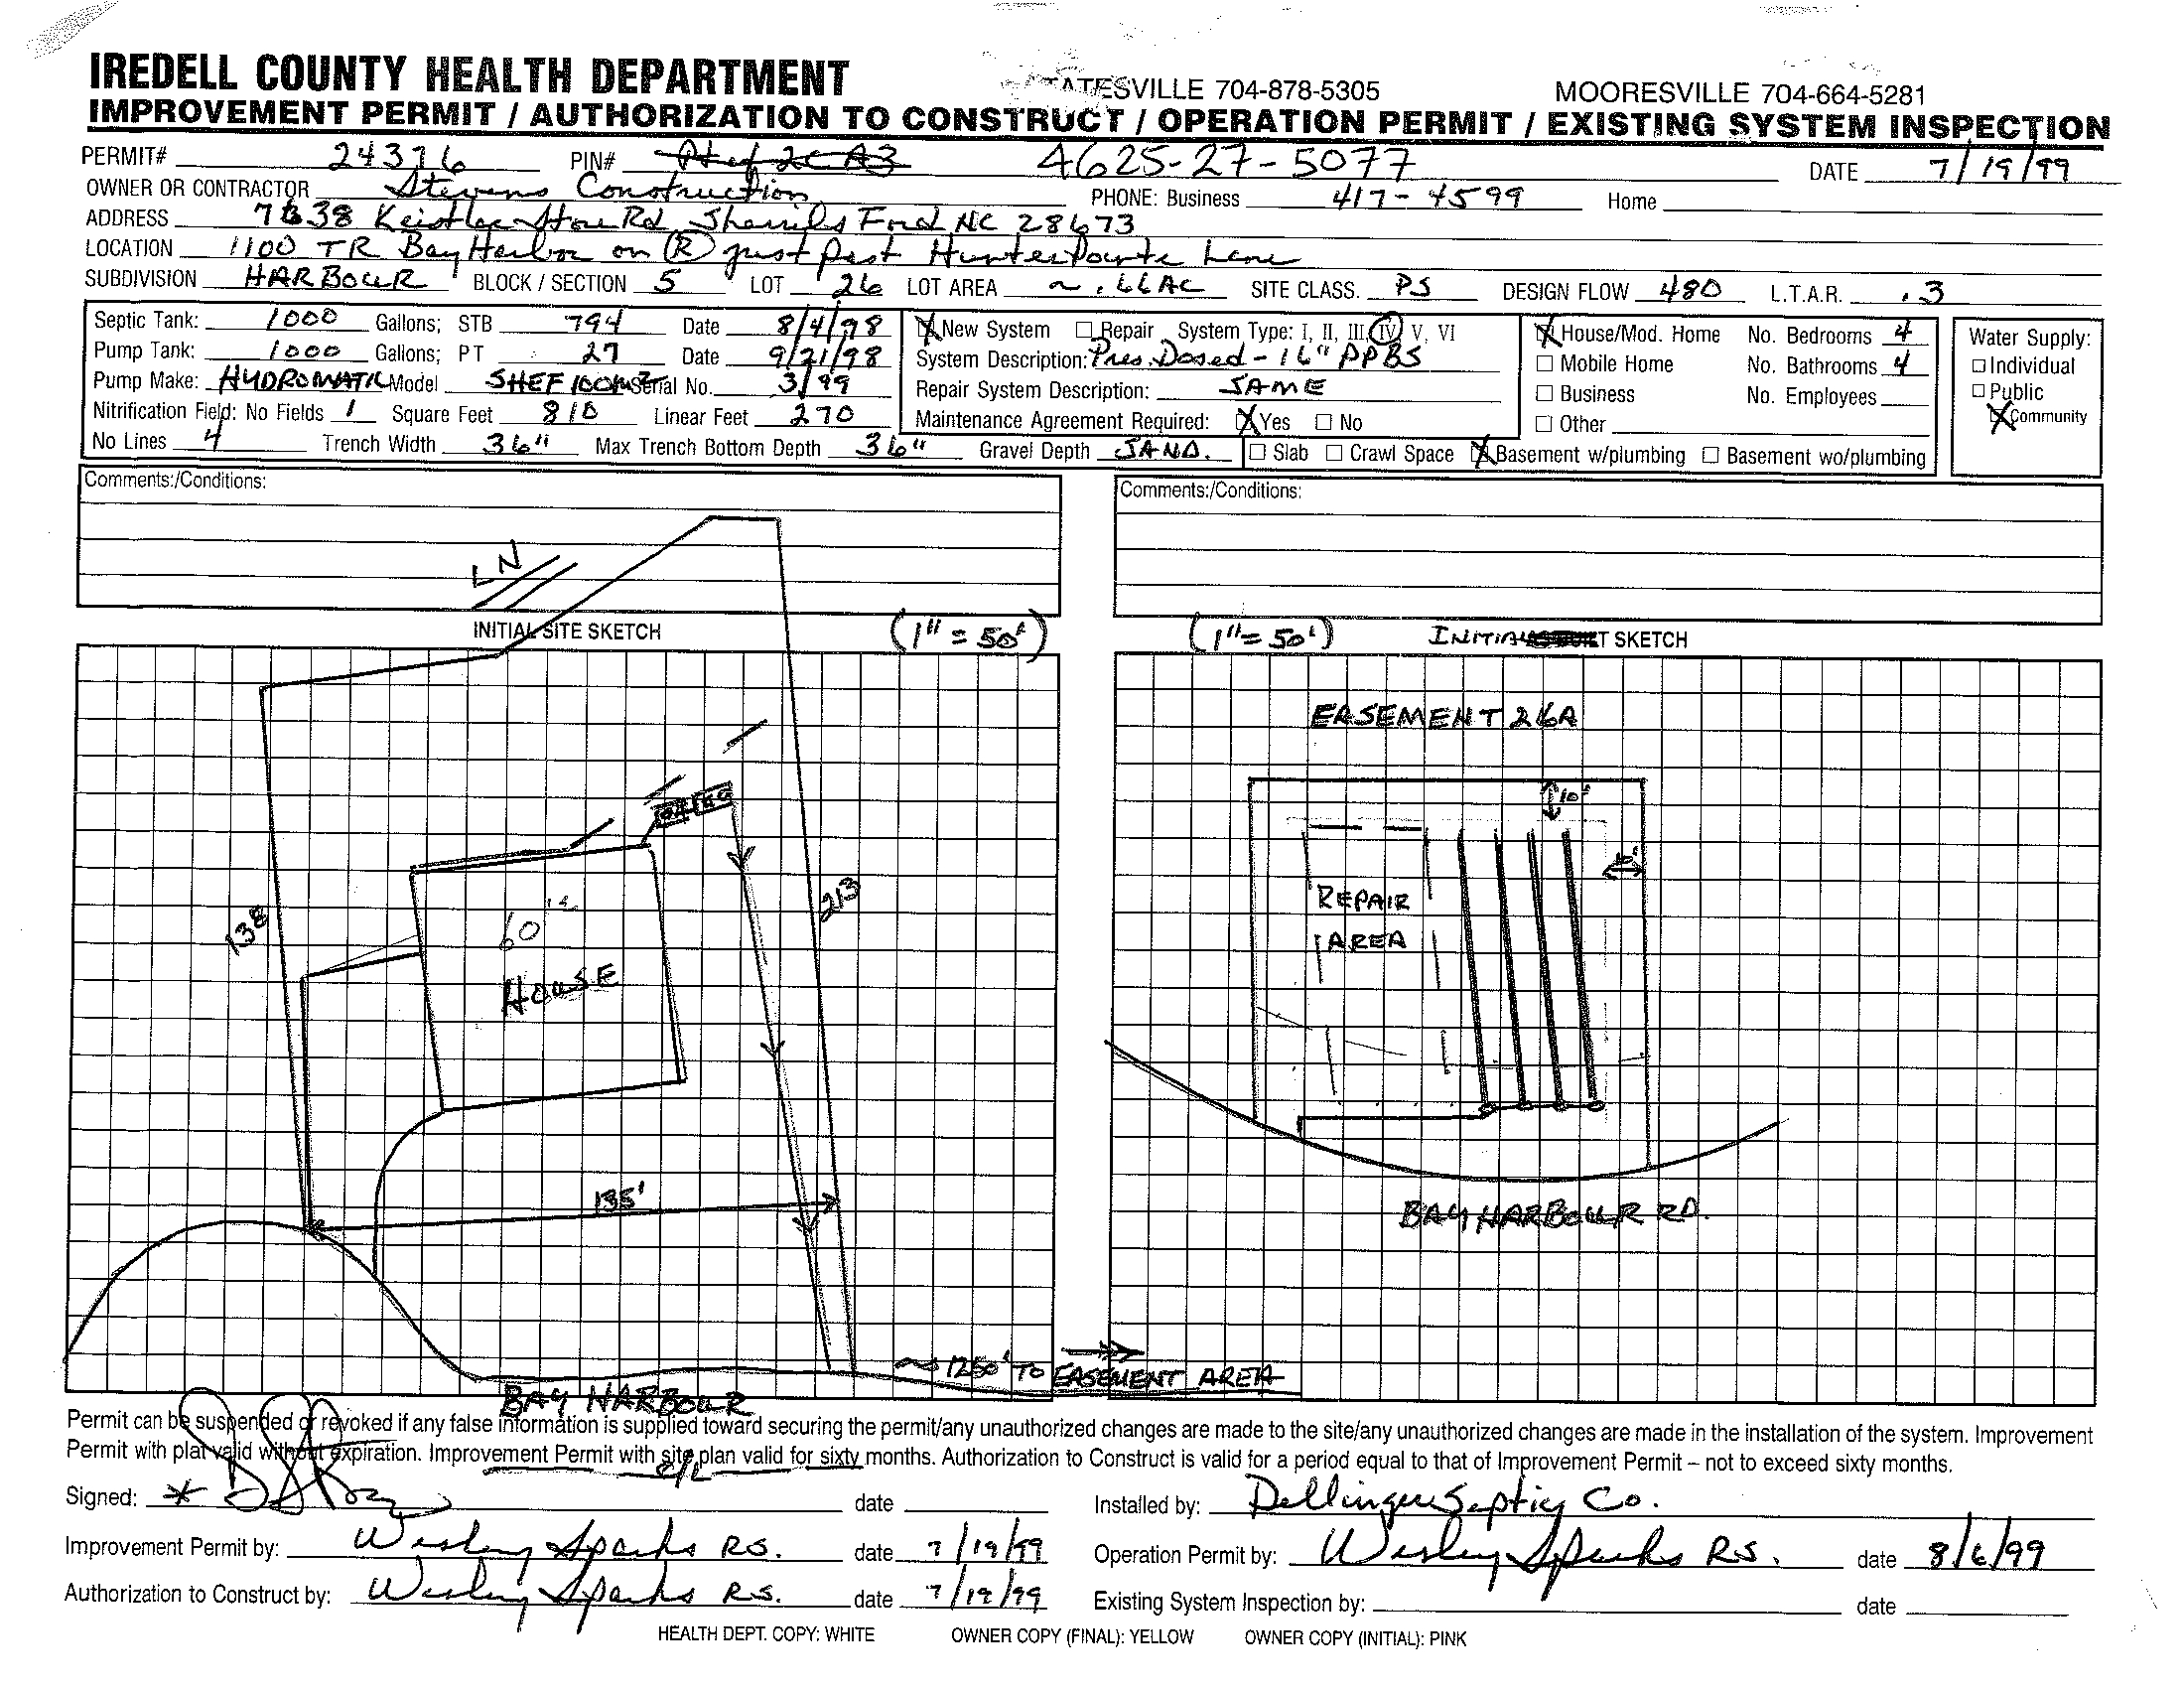 IREDELL COUNTY HEALTH DEPARTMENT
STATESVILLE 704-878-5305 MOORESVILLE 704-664-5281
IMPROVEMENT PERMIT / AUTHORIZATION TO CONSTRUCT / OPERATION PERMIT / EXISTING SYSTEM INSPECTION
PERMIT# 24376 PIN# 4625-27-5077 DATE 7/19/99
OWNER OR CONTRACTOR Stevens Construction PHONE: Business 417-4599 Home
ADDRESS Keistler Store Rd Sherrills Ford NC 28673
LOCATION 1100 TR Bay Harbor on (R) just past Hunter Pointe Lane
SUBDIVISION HARBOUR BLOCK / SECTION 5 LOT 26 LOT AREA ~.66AC SITE CLASS. PS DESIGN FLOW 480 L.T.A.R. .3
Septic Tank: 1000 Gallons; STB 794 Date 8/4/98
Pump Tank: 1000 Gallons; PT 27 Date 9/21/98
Pump Make: HYDROMATIC Model Serial No. 3/99
Nitrification Field: No Fields 1 Square Feet 810 Linear Feet 270
No Lines 4 Trench Width 36" Max Trench Bottom Depth 36" Gravel Depth SAND.
X New System Repair System Type: I, II, III, IV, V, VI
System Description: Pres. Dosed - 16" PPBS
Repair System Description: SAME
Maintenance Agreement Required: X Yes No
Slab Crawl Space X Basement w/plumbing Basement wo/plumbing
X House/Mod. Home No. Bedrooms 4
Mobile Home No. Bathrooms 4
Business No. Employees
Other
Water Supply:
Individual
Public
X Community
Comments:/Conditions:
Comments:/Conditions:
N
INITIAL SITE SKETCH (1" = 50')
(1" = 50') INITIAL SKETCH
EASEMENT 26A
10'
138
213
60'
HOUSE
REPAIR
AREA
135'
BAY HARBOUR RD.
~ 1250' TO EASEMENT AREA
BAY HARBOUR
Permit can be suspended or revoked if any false information is supplied toward securing the permit/any unauthorized changes are made to the site/any unauthorized changes are made in the installation of the system. Improvement
Permit with plat valid without expiration. Improvement Permit with site plan valid for sixty months. Authorization to Construct is valid for a period equal to that of Improvement Permit – not to exceed sixty months.
Signed: * date
Installed by: Dellinger Septic Co.
Improvement Permit by: Wesley Sparks RS. date 7/19/99
Operation Permit by: Wesley Sparks R.S. date 8/6/99
Authorization to Construct by: Wesley Sparks R.S. date 7/19/99
Existing System Inspection by: date
HEALTH DEPT. COPY: WHITE OWNER COPY (FINAL): YELLOW OWNER COPY (INITIAL): PINK